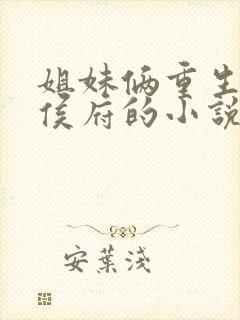 姐妹俩重生
侯府的小說
安葉淺